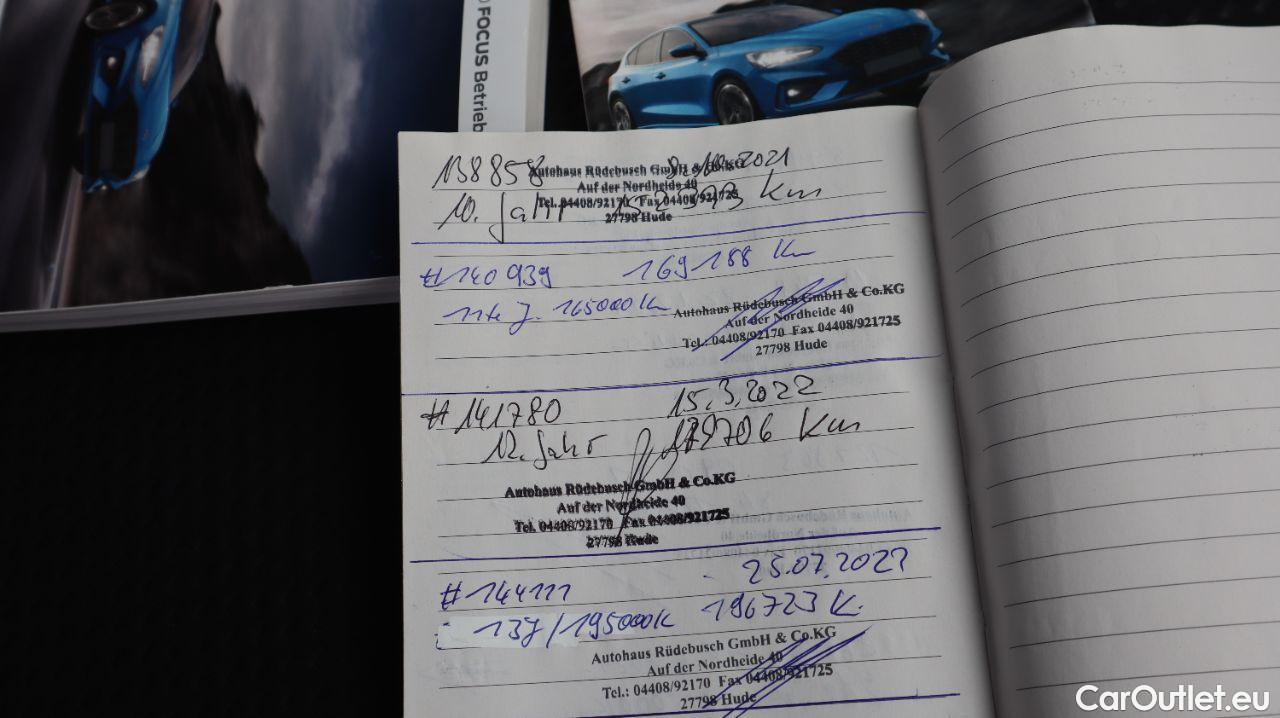 FOCUS Betrieb
138858
Autohaus Rüdebusch GmbH & Co.KG
2021
Auf der Nordheide 40
10. Jahr
Km
Tel. 04408/92170 Fax 04408/921725
27798 Hude
#140939 169188 Km
11te J. 165000 Km
Autohaus Rüdebusch GmbH & Co.KG
Auf der Nordheide 40
Tel.: 04408/92170 Fax 04408/921725
27798 Hude
#141780 15.3.2022
12. Jahr 179706 Km
Autohaus Rüdebusch GmbH & Co.KG
Auf der Nordheide 40
Tel. 04408/92170 Fax 04408/921725
27798 Hude
#144111 25.07.2022
13J/195000K 196723 K.
Autohaus Rüdebusch GmbH & Co.KG
Auf der Nordheide 40
Tel.: 04408/92170 Fax 04408/921725
27798 Hude
CarOutlet.eu